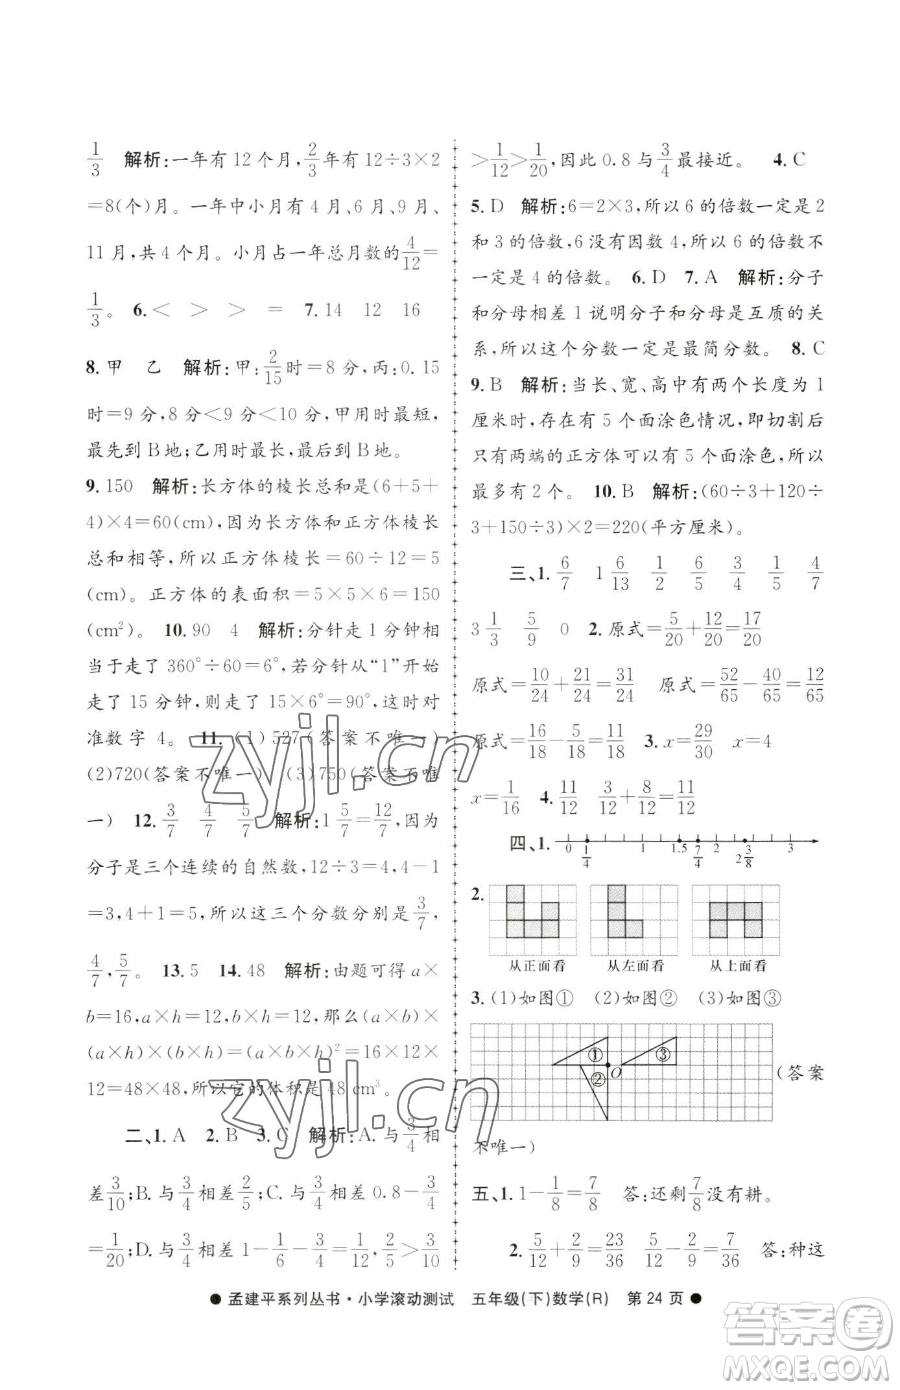 1/3 解析:一年有 12 个月,2/3年有 12÷3×2
=8(个)月。一年中小月有 4 月、6 月、9 月、
11 月,共 4 个月。小月占一年总月数的4/12=
1/3。 6.< > > = 7.14 12 16
8.甲 乙 解析:甲:2/15时=8 分,丙:0.15
时=9 分,8 分<9 分<10 分,甲用时最短,
最先到 B 地;乙用时最长,最后到 B 地。
9.150 解析:长方体的棱长总和是(6+5+
4)×4=60(cm),因为长方体和正方体棱长
总和相等,所以正方体棱长=60÷12=5
(cm)。正方体的表面积=5×5×6=150
(cm²)。 10.90 4 解析:分针走 1 分钟相
当于走了 360°÷60=6°,若分针从“1”开始
走了 15 分钟,则走了15×6°=90°,这时对
准数字 4。 11.(1)527(答案不唯一)
(2)720(答案不唯一) (3)750(答案不唯
一) 12.3/7 4/7 5/7 解析:1 5/7=12/7,因为
分子是三个连续的自然数,12÷3=4,4-1
=3,4+1=5,所以这三个分数分别是3/7,
4/7,5/7。 13.5 14.48 解析:由题可得 a×
b=16,a×h=12,b×h=12,那么(a×b)×
(a×h)×(b×h)=(a×b×h)²=16×12×
12=48×48,所以它的体积是 48 cm³。
二、1.A 2.B 3.C 解析:A.与3/4相
差3/10;B.与3/4相差2/5;C.与3/4相差 0.8-3/4
=1/20;D.与3/4相差 1-1/6-3/4=1/12,2/5>3/10
>1/12>1/20,因此 0.8 与3/4最接近。 4.C
5.D 解析:6=2×3,所以 6 的倍数一定是 2
和 3 的倍数,6 没有因数 4,所以 6 的倍数不
一定是 4 的倍数。 6.D 7.A 解析:分子
和分母相差 1 说明分子和分母是互质的关
系,所以这个分数一定是最简分数。 8.C
9.B 解析:当长、宽、高中有两个长度为 1
厘米时,存在有 5 个面涂色情况,即切割后
只有两端的正方体可以有 5 个面涂色,所以
最多有 2 个。 10.B 解析:(60÷3+120÷
3+150÷3)×2=220(平方厘米)。
三、1.6/7 1 6/13 1/2 6/5 3/4 1/15 4/7
3 1/3 5/9 0 2.原式=5/20+12/20=17/20
原式=10/24+21/24=31/24 原式=52/65-40/65=12/65
原式=16/18-5/18=11/18 3.x=29/30 x=4
x=1/16 4.11/12 3/12+8/12=11/12
四、1. 0 1/4 1 1.5 7/4 2 3/8 3
2.
从正面看 从左面看 从上面看
3.(1)如图① (2)如图② (3)如图③
① ② ③ O (答案
不唯一)
五、1.1-1/8=7/8 答:还剩7/8没有耕。
2.5/12+2/9=23/36 5/12-2/9=7/36 答:种这
● 孟建平系列丛书·小学滚动测试 五年级(下)数学(R) 第 24 页 ●
zyjl.cn
zyjl.cn
答案圈
MXQE.COM